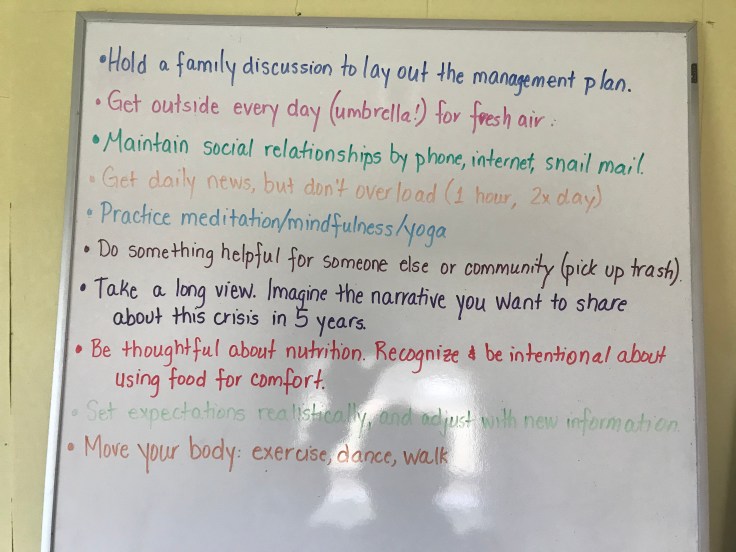 •Hold a family discussion to lay out the management plan.
• Get outside every day (umbrella!) for fresh air.
• Maintain social relationships by phone, internet, snail mail.
• Get daily news, but don't overload (1 hour, 2x day)
• Practice meditation/mindfulness/yoga
• Do something helpful for someone else or community (pick up trash).
• Take a long view. Imagine the narrative you want to share
about this crisis in 5 years.
• Be thoughtful about nutrition. Recognize & be intentional about
using food for comfort.
• Set expectations realistically, and adjust with new information
• Move your body: exercise, dance, walk